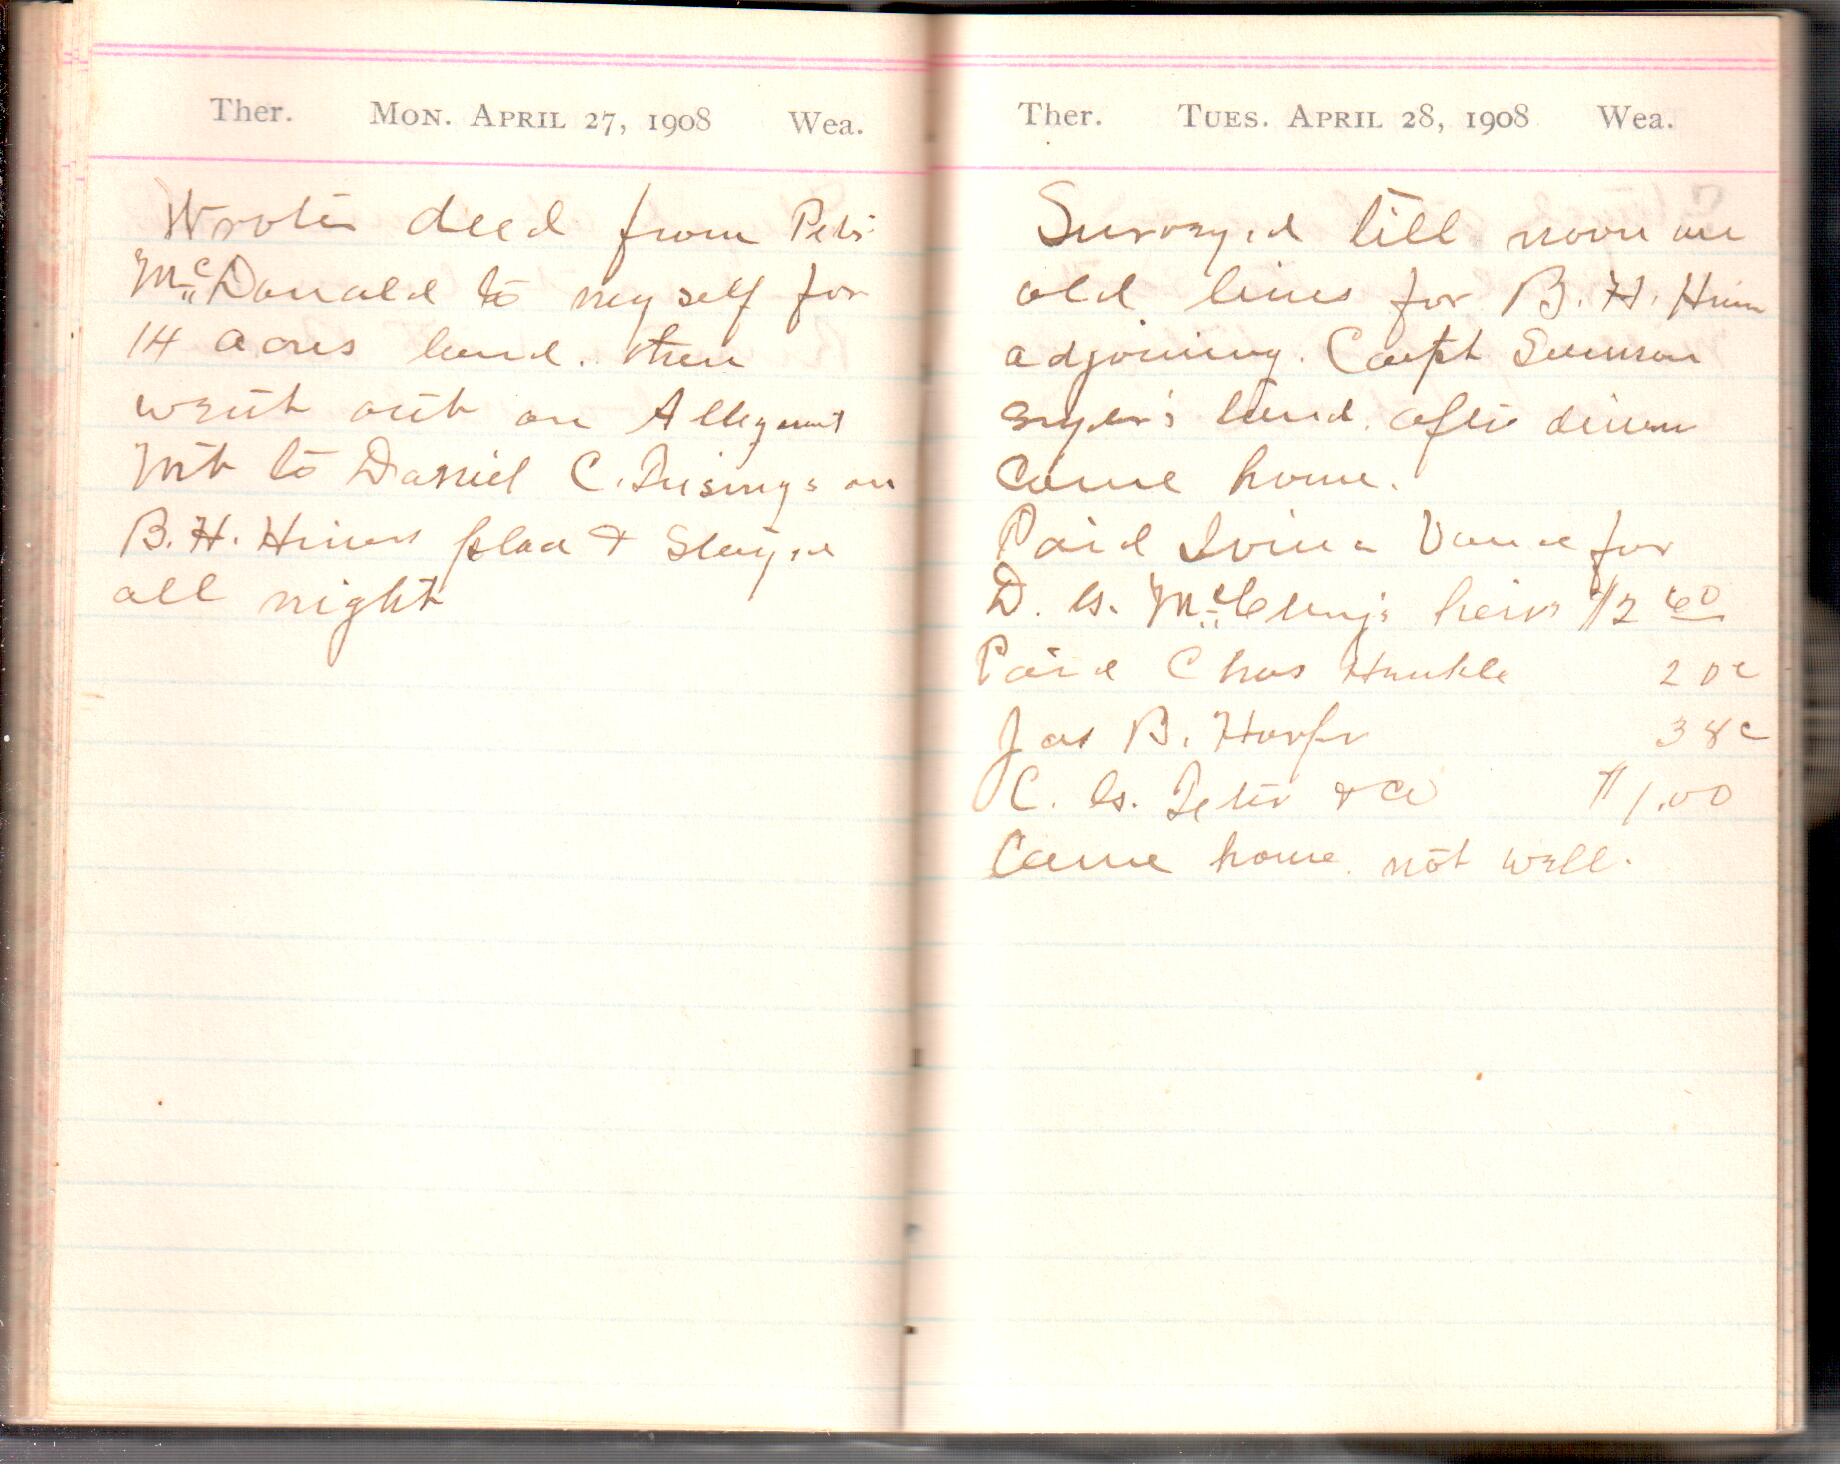 Ther. Mon. April 27, 1908 Wea.
Wrote deed from Peter
McDonald to my self for
14 acres land. then
went out on Allegany
Mt to Daniel C. on
B. H. Hiners place & Stayed
all night
Ther. Tues. April 28, 1908 Wea.
Surveyed till noon on
old lines for B. H. Hiner
adjoining. Capt Swinson
land. after dinner
Came home.
Paid Vance for
D. G. McClung's heirs $2 60
Paid Chas 20c
Jas B. 38c
C. G. Teter & Co $1.00
Came home not well.